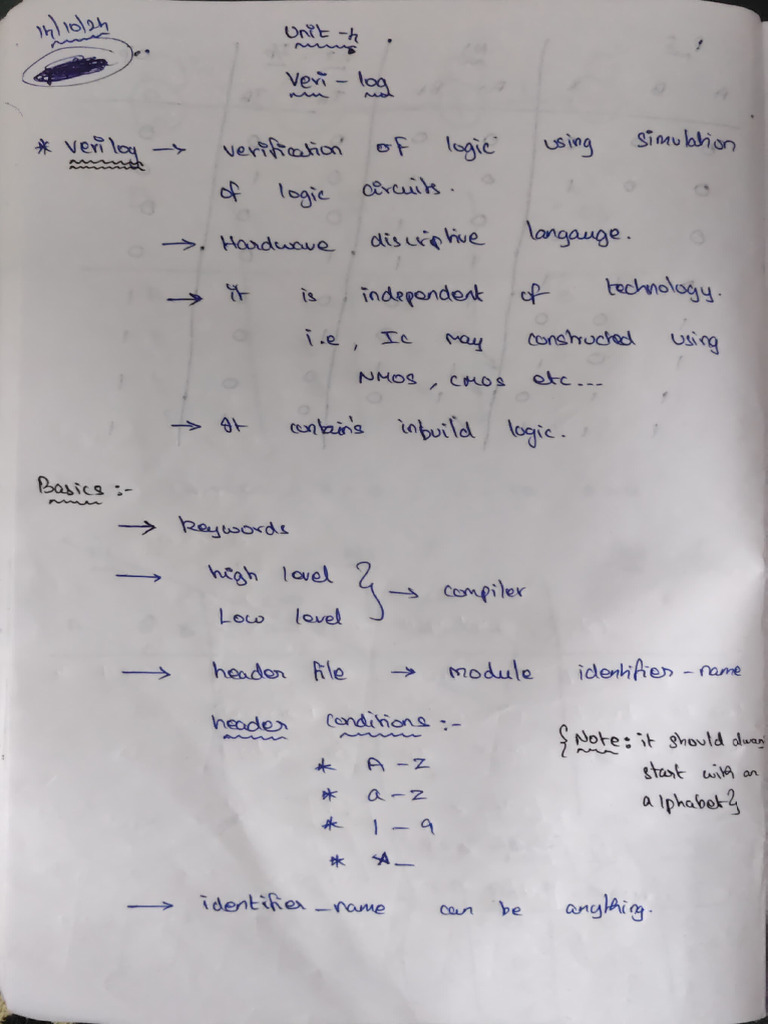 14/10/24
Unit-4
Veri-log
* verilog → verification of logic using simulation
of logic circuits.
→. Hardwave discriptive langauge.
→ it is independent of technology.
i.e, Ic may constructed using
NMOS, CMOS etc...
→ It contain's inbuild logic.
Basics :-
→ keywords
→ high level } → compiler
Low level
→ header file → module identifier-name
header conditions :-
{Note: it should alway
start with an
alphabet}
* A-Z
* a-z
* 1-9
* _
→ identifier_name can be anything.